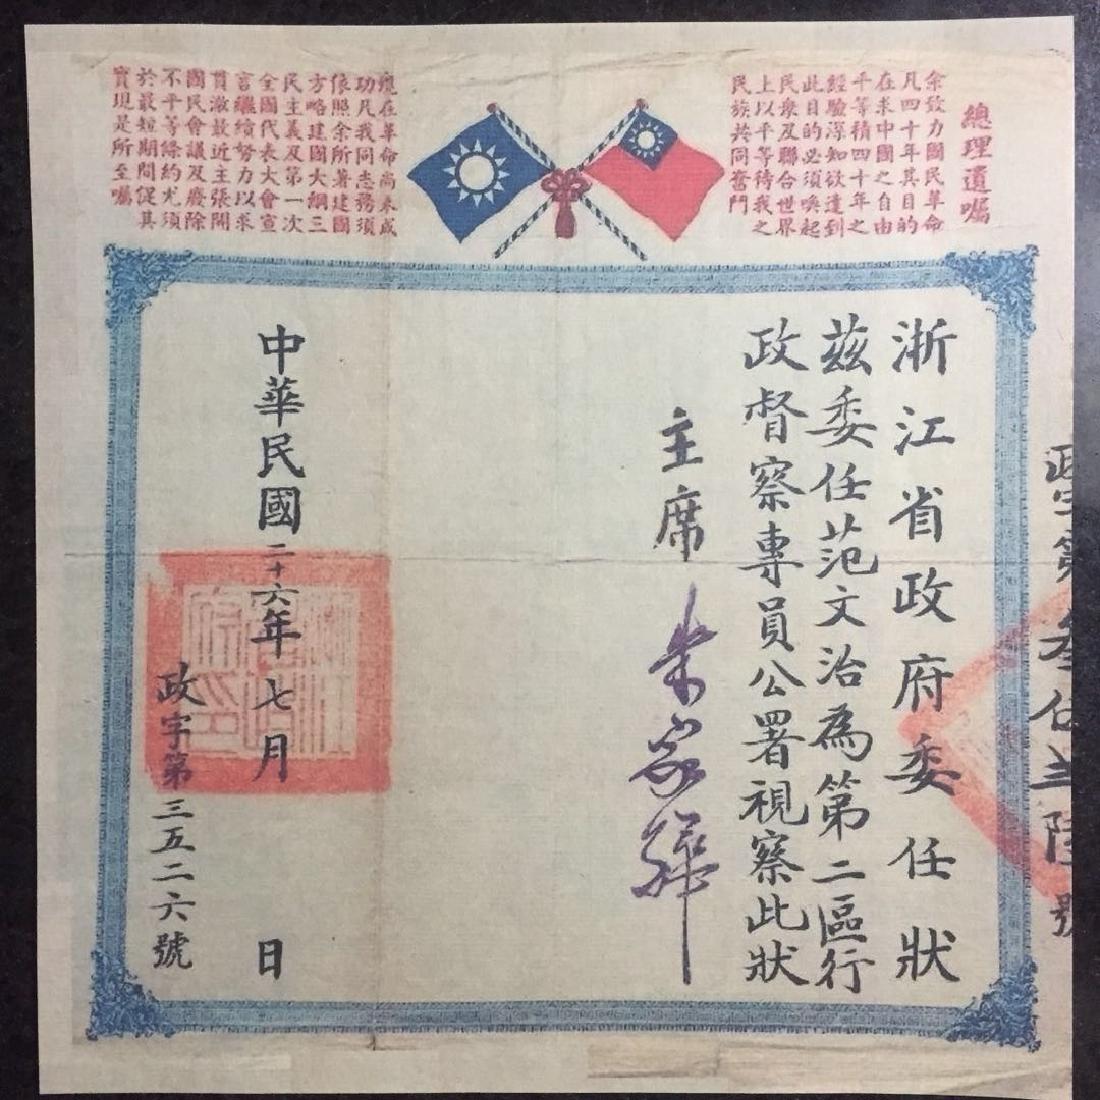 總理遺囑
余致力國民革命
凡四十年其目的
在求中國之自由
平等積四十年之
經驗深知欲達到
此目的必須喚起
民衆及聯合世界
上以平等待我之
民族共同奮鬥
現在革命尚未成
功凡我同志務須
依照余所著建國
方略建國大綱三
民主義及第一次
全國代表大會宣
言繼續努力以求
貫澈最近主張開
國民會議及廢除
不平等條約尤須
於最短期間促其
實現是所至囑
政字第叁伍
號
浙江省政府委任狀
茲委任范文治為第二區行
政督察專員公署視察此狀
主席 朱家驊
中華民國二十六年七月 日
政字第三五二六號
浙江省政府印